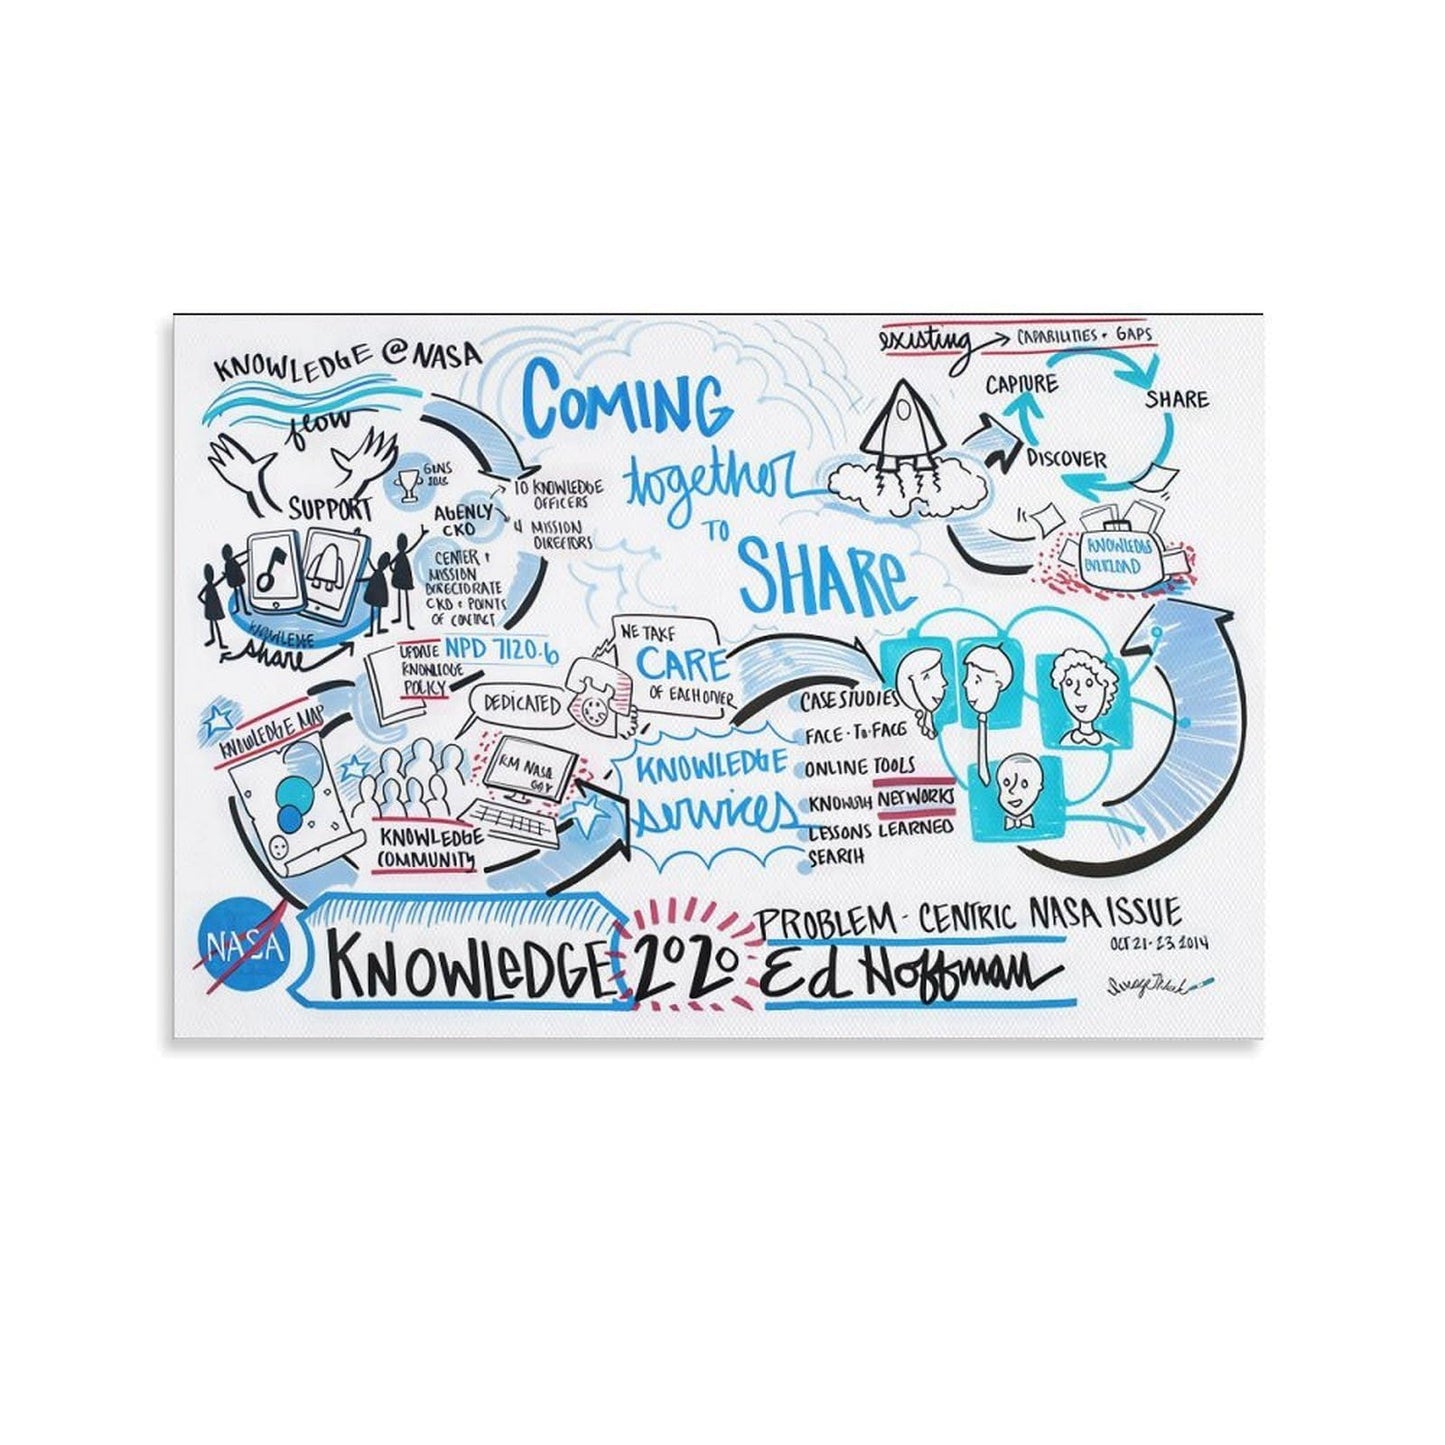 KNOWLEDGE @ NASA
flow
SUPPORT
KNOWLEDGE
share
AGENCY
CKO
10 KNOWLEDGE
OFFICERS
4 MISSION
DIRECTORS
CENTER +
MISSION
DIRECTORATE
CKO + POINTS
OF CONTACT
UPDATE NPD 7120.6
KNOWLEDGE
POLICY
COMING
together
TO
SHARE
existing → CAPABILITIES + GAPS
CAPTURE
SHARE
DISCOVER
KNOWLEDGE
OVERLOAD
WE TAKE
CARE
OF EACH OTHER
DEDICATED
KNOWLEDGE MAP
KM NASA
GOV
KNOWLEDGE
COMMUNITY
KNOWLEDGE
services
CASE STUDIES
FACE-TO-FACE
ONLINE TOOLS
NETWORKS
LESSONS LEARNED
SEARCH
NASA
KNOWLEDGE 2020
PROBLEM-CENTRIC NASA ISSUE
OCT 21-23 2014
Ed Hoffman
ImageThink